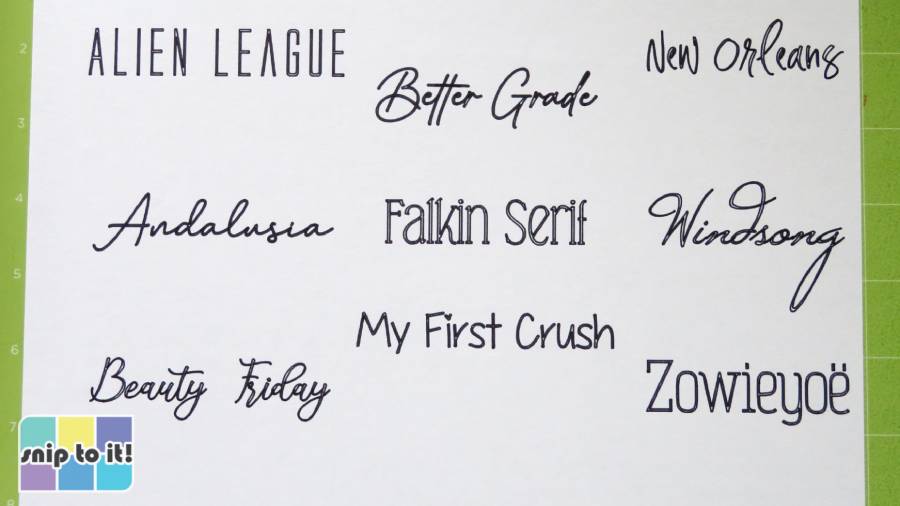 ALIEN LEAGUE
Better Grade
New Orleans
Andalusia
Falkin Serif
Windsong
My First Crush
Beauty Friday
Zowieyoë
snip to it!
2
3
4
5
6
7
8